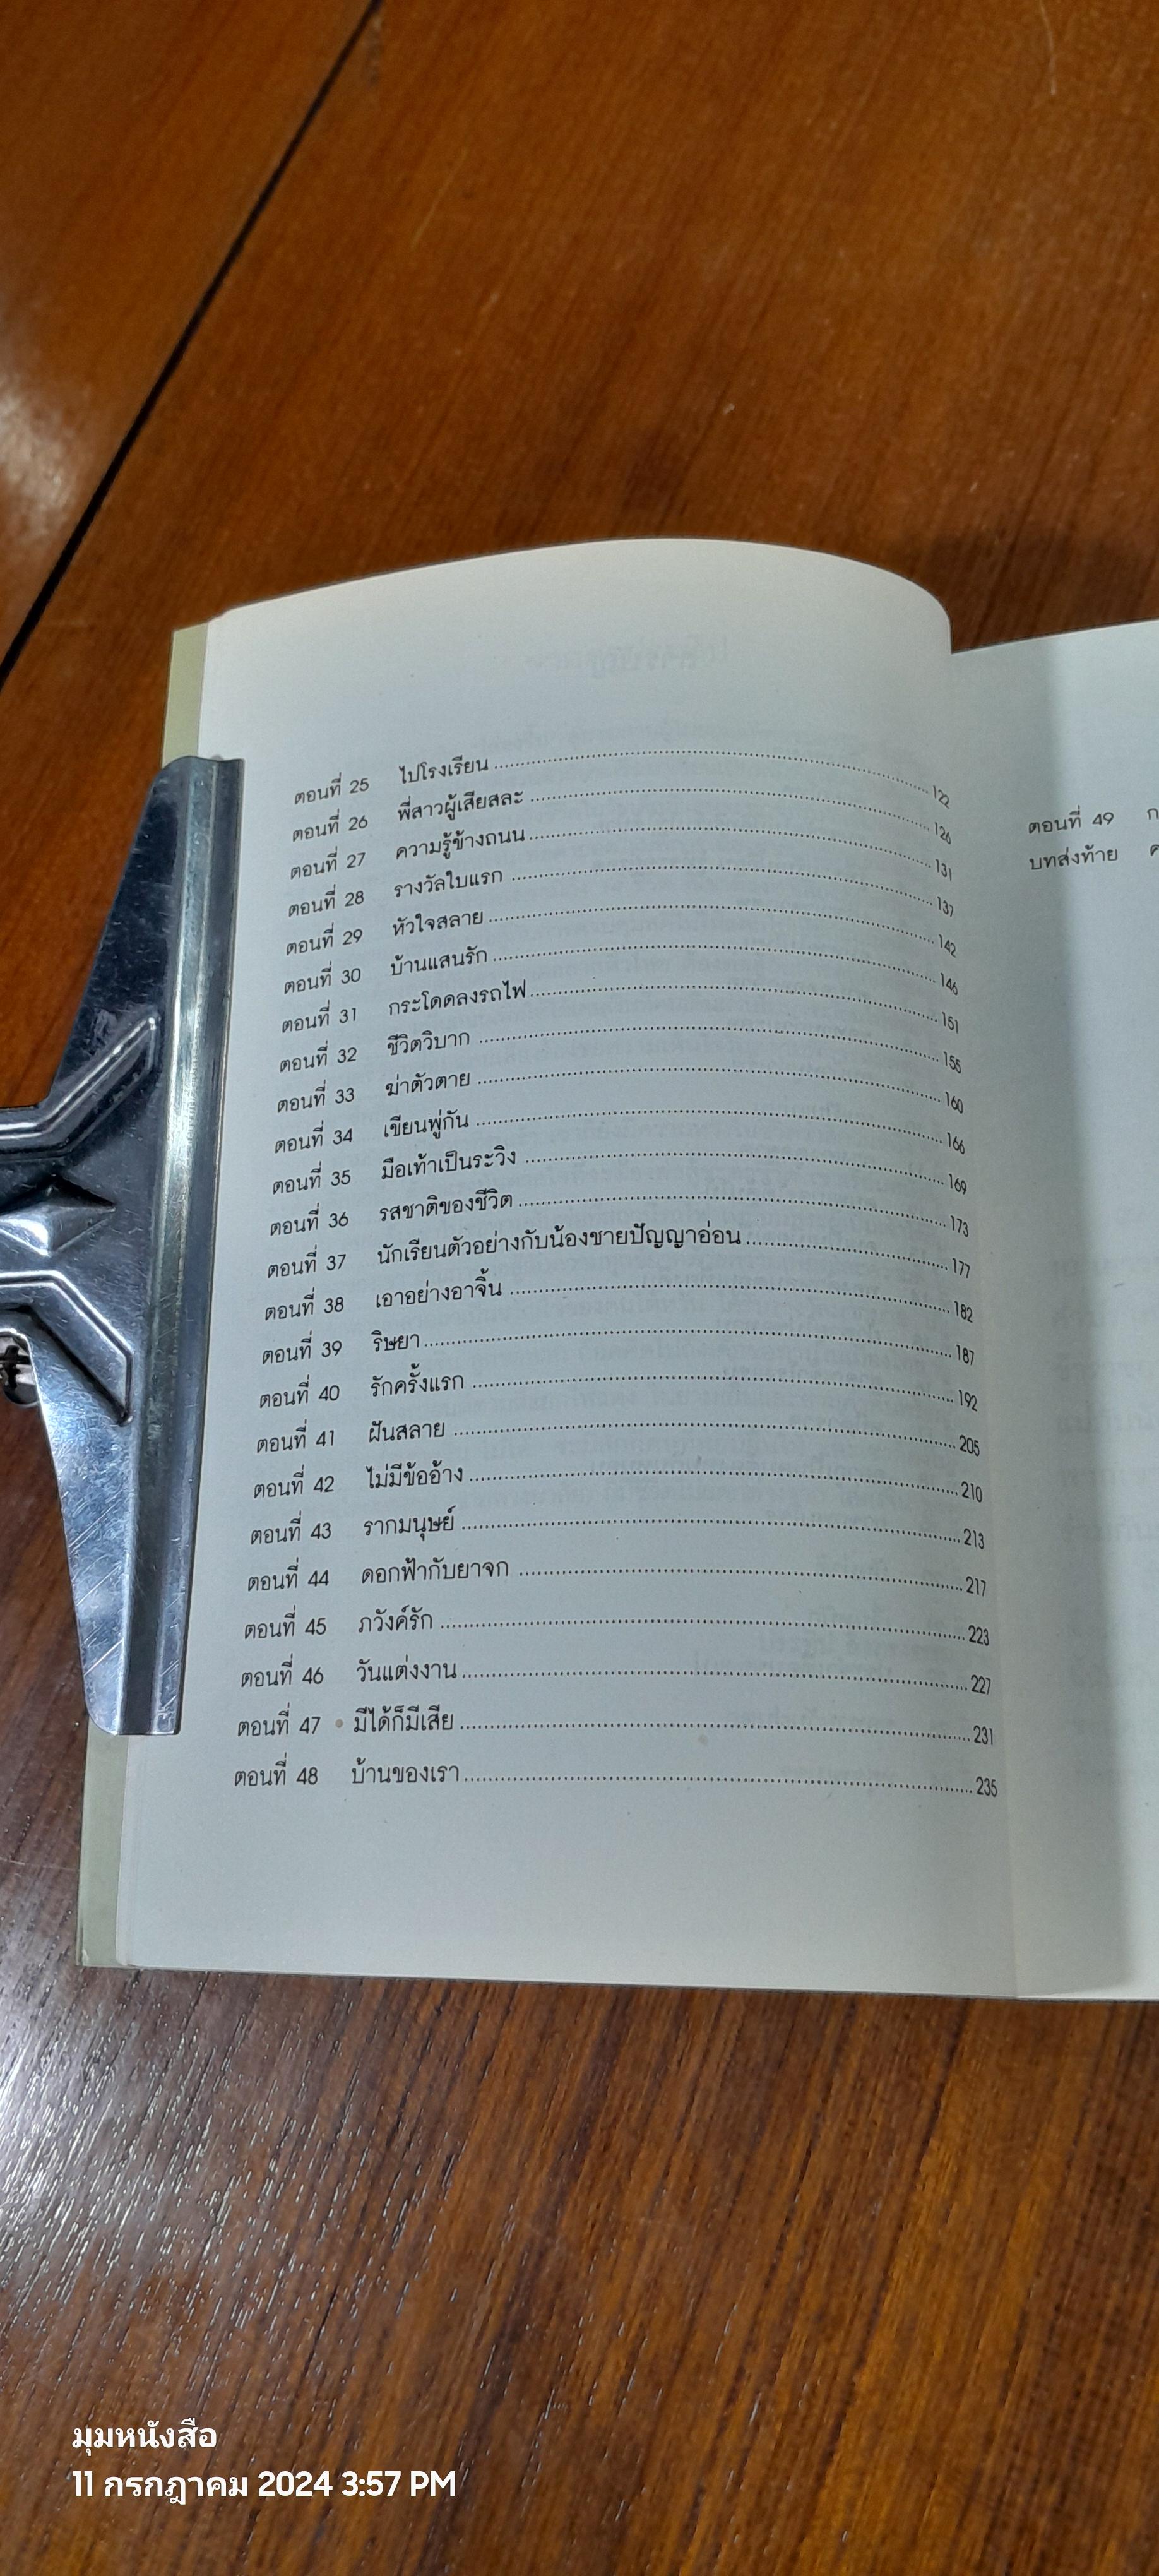 ตอนที่ 25 ไปโรงเรียน 122
ตอนที่ 26 พี่สาวผู้เสียสละ 126
ตอนที่ 27 ความรู้ข้างถนน 131
ตอนที่ 28 รางวัลใบแรก 137
ตอนที่ 29 หัวใจสลาย 142
ตอนที่ 30 บ้านแสนรัก 146
ตอนที่ 31 กระโดดลงรถไฟ 151
ตอนที่ 32 ชีวิตวิบาก 155
ตอนที่ 33 ฆ่าตัวตาย 160
ตอนที่ 34 เขียนพู่กัน 166
ตอนที่ 35 มือเท้าเป็นระวิง 169
ตอนที่ 36 รสชาติของชีวิต 173
ตอนที่ 37 นักเรียนตัวอย่างกับน้องชายปัญญาอ่อน 177
ตอนที่ 38 เอาอย่างอาจิ้น 182
ตอนที่ 39 ริษยา 187
ตอนที่ 40 รักครั้งแรก 192
ตอนที่ 41 ฝันสลาย 205
ตอนที่ 42 ไม่มีข้ออ้าง 210
ตอนที่ 43 รากมนุษย์ 213
ตอนที่ 44 ดอกฟ้ากับยาจก 217
ตอนที่ 45 ภวังค์รัก 223
ตอนที่ 46 วันแต่งงาน 227
ตอนที่ 47 มีได้ก็มีเสีย 231
ตอนที่ 48 บ้านของเรา 235
ตอนที่ 49
บทส่งท้าย
มุมหนังสือ
11 กรกฎาคม 2024 3:57 PM